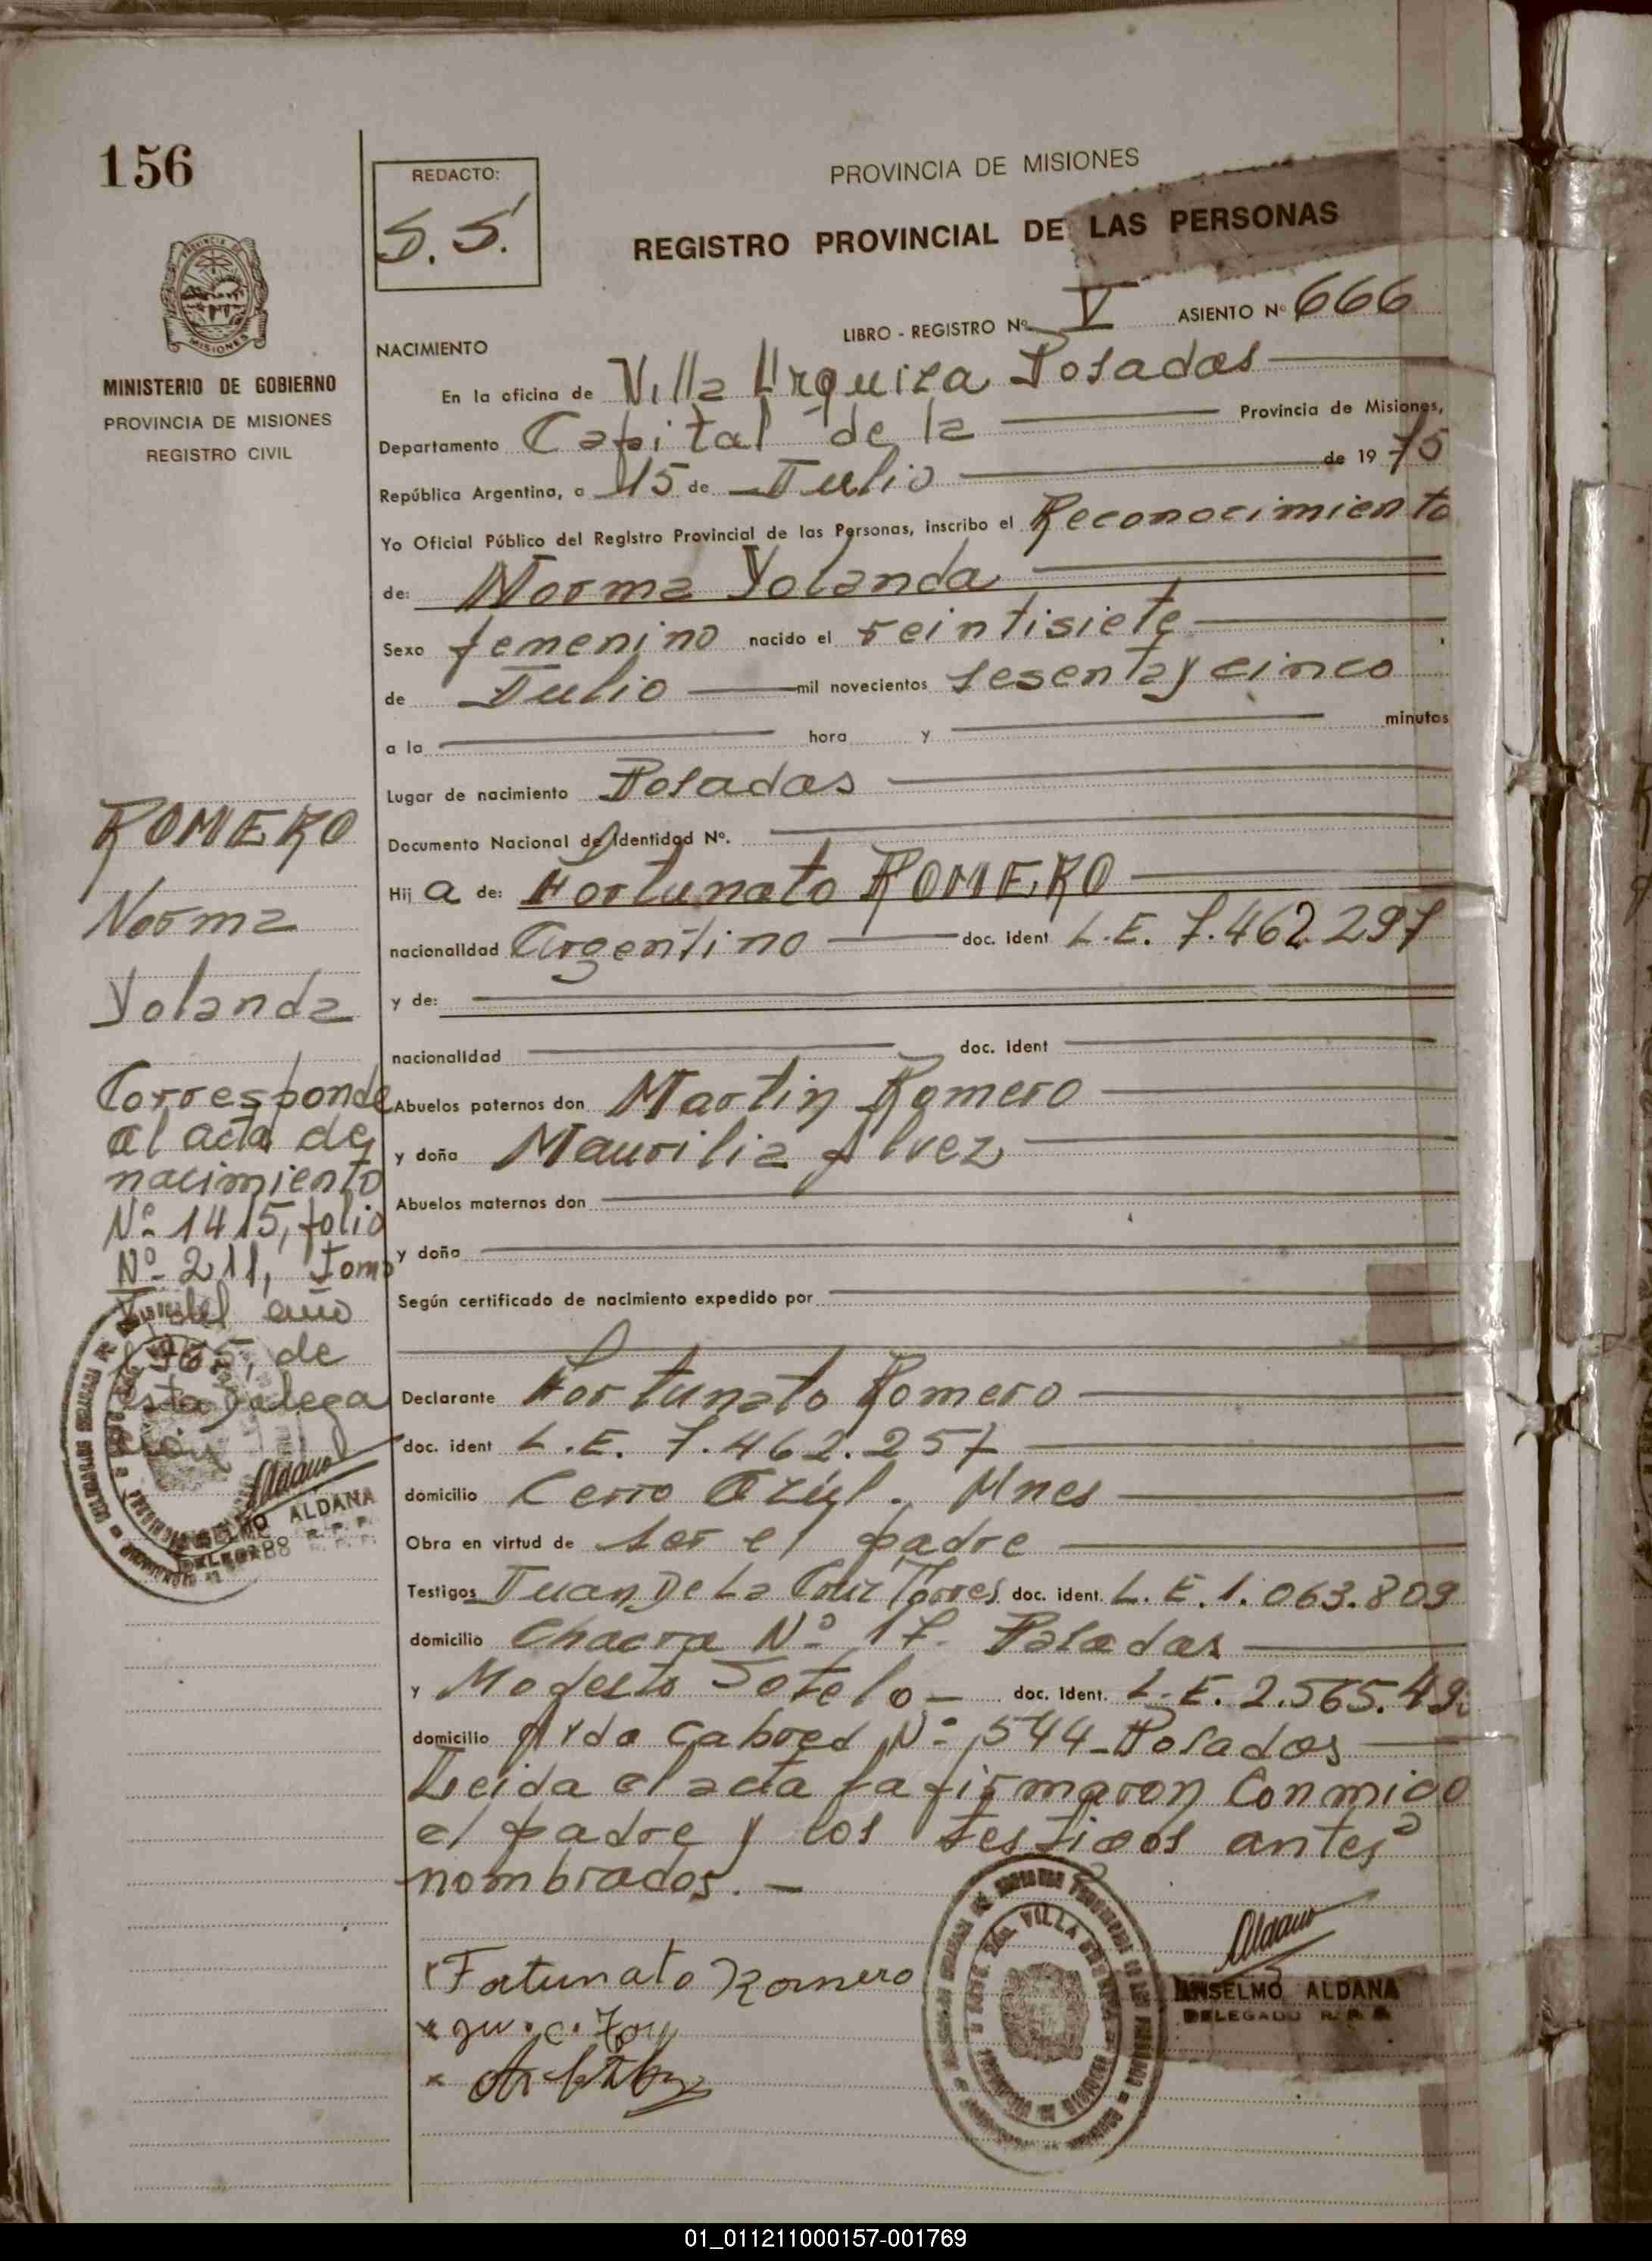 156
REDACTO:
S.S.
PROVINCIA DE MISIONES
REGISTRO PROVINCIAL DE LAS PERSONAS
MISIONES
MINISTERIO DE GOBIERNO
PROVINCIA DE MISIONES
REGISTRO CIVIL
LIBRO - REGISTRO Nº V ASIENTO Nº 666
NACIMIENTO
En la oficina de Villa Urquiza Posadas
Departamento Capital de la Provincia de Misiones,
República Argentina, a 15 de Julio de 19 75
Yo Oficial Público del Registro Provincial de las Personas, inscribo el Reconocimiento
de: Norma Yolanda
Sexo femenino nacido el veintisiete
de Julio mil novecientos sesenta y cinco
a la hora y minutos
Lugar de nacimiento Posadas
Documento Nacional de Identidad Nº.
Hij a de: Fortunato ROMERO
nacionalidad Argentino doc. Ident L.E. 7.462.297
y de:
nacionalidad doc. Ident
Abuelos paternos don Martin Romero
y doña Maurilia Alvez
Abuelos maternos don
y doña
Según certificado de nacimiento expedido por
Declarante Fortunato Romero
doc. ident L.E. 7.462.257
domicilio Cerro Azúl. Mnes
Obra en virtud de ser el padre
Testigos Juan De La Cruz Torres doc. ident. L.E. 1.063.809
domicilio Chacra Nº 17. Posadas
y Modesto Sotelo - doc. Ident. L.E. 2.565.49
domicilio Avda Cabred Nº 544 - Posadas
Leida el acta la firmaron conmigo
el padre y los testigos antes
nombrados. -
Fortunato Romero
ANSELMO ALDANA
DELEGADO R. P. P.
ROMERO
Norma
Yolanda
Corresponde
al acta de
nacimiento
Nº 1415, folio
Nº 211, Tomo
del año
1965, de
esta Delega
ción
ANSELMO ALDANA
DELEGADO R. P. P.
01_011211000157-001769